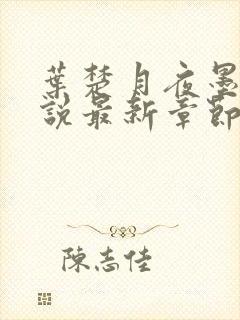 葉楚月夜墨
說最新章節
陳志佳